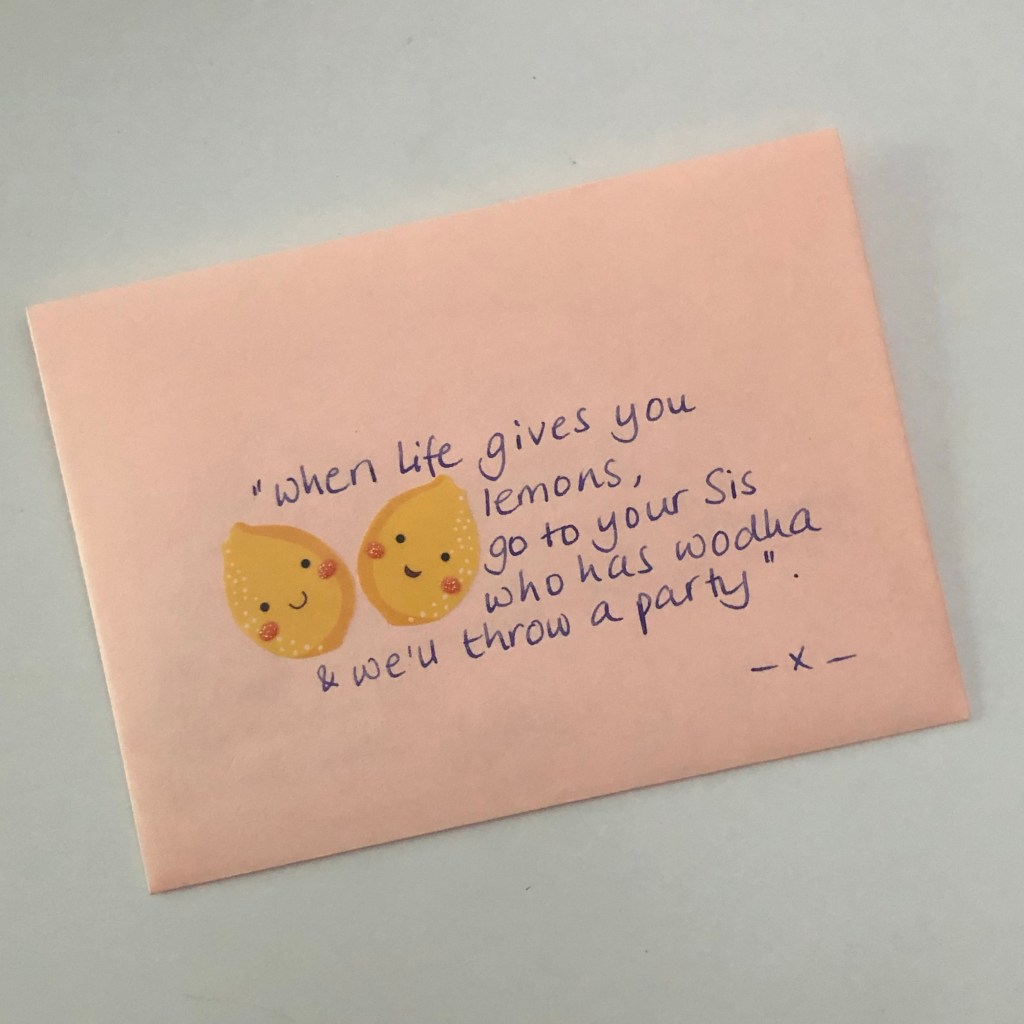 "when life gives you
lemons,
go to your Sis
who has wodka
& we'll throw a party".
– x –